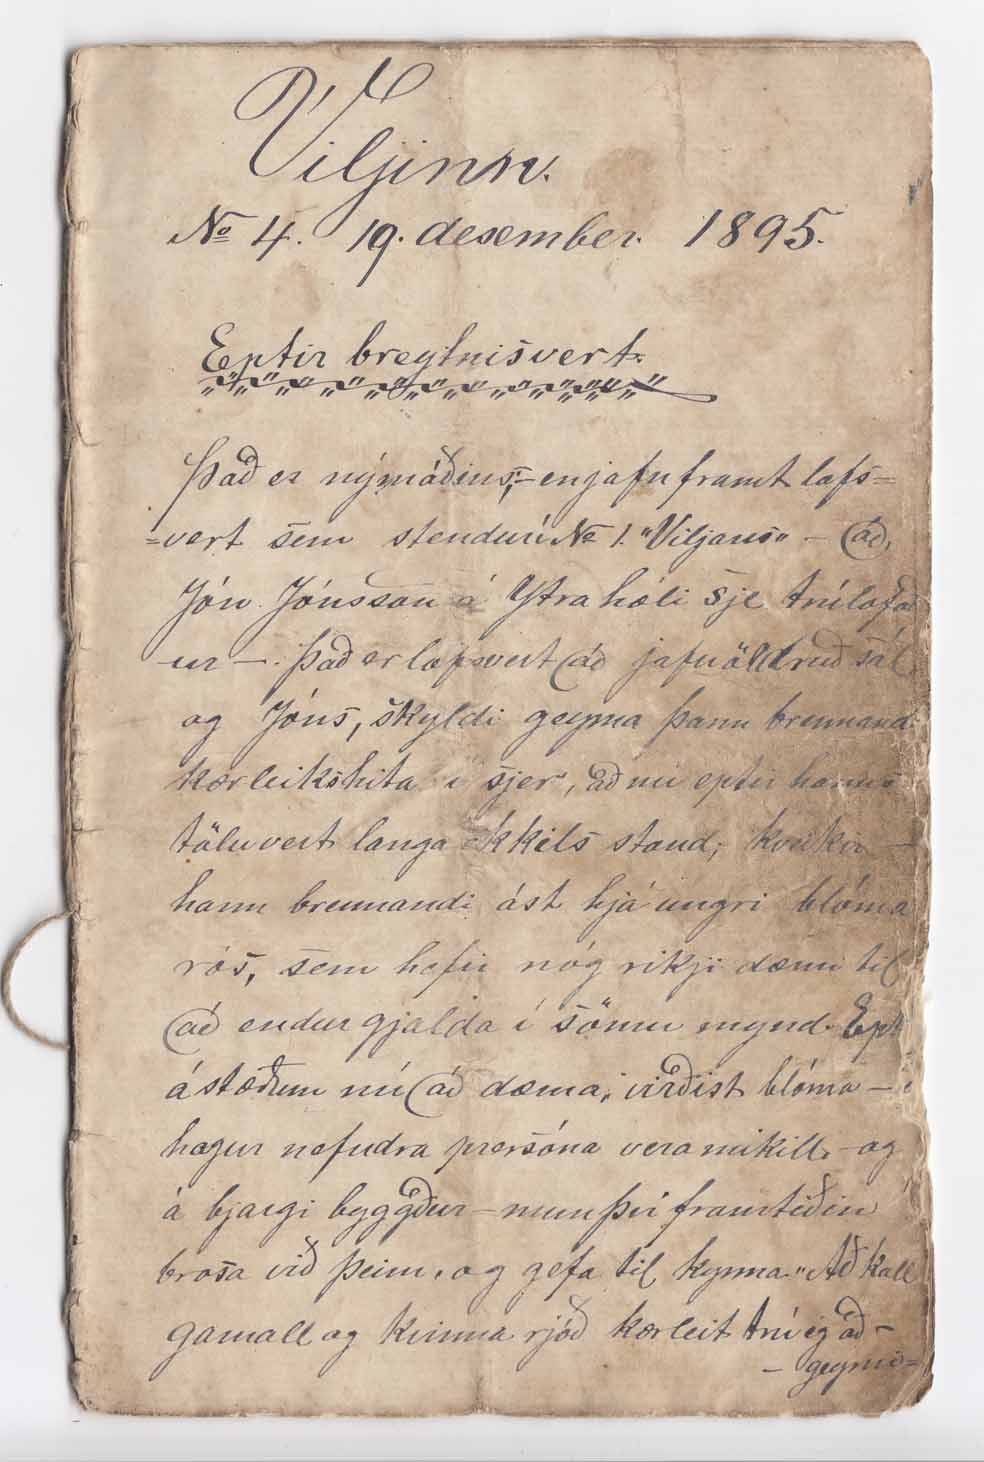 Viljinn.
No 4. 19. desember. 1895.
Eptir breytnisvert.
Það er nýmóðins, - en jafnframt lofs=
=vert sem stendur í No 1. "Viljans" - að,
Jón Jónsson á Ytrahóli sje trúlofað
-ur -. Það er lofsvert að jafnöldruð sál
og Jóns, skyldi geyma þann brennandi
kærleikshita í sjer, að nú eptir hanns
töluvert langa ekkils stand, kveikir
hann brennandi ást hjá ungri blóma
rós, sem hefir nóg rikji dæmi til
að endurgjalda í sömu mynd. Ept
ástæðum nú að dæma, virðist blóma -
hagur nefndra persóna vera mikill, - og
á bjargi byggður - mun því framtiðin
brosa við þeim, og gefa til kynna. "Að kall
gamall og kvinna rjóð kærleik trú eg að -
- geymi=